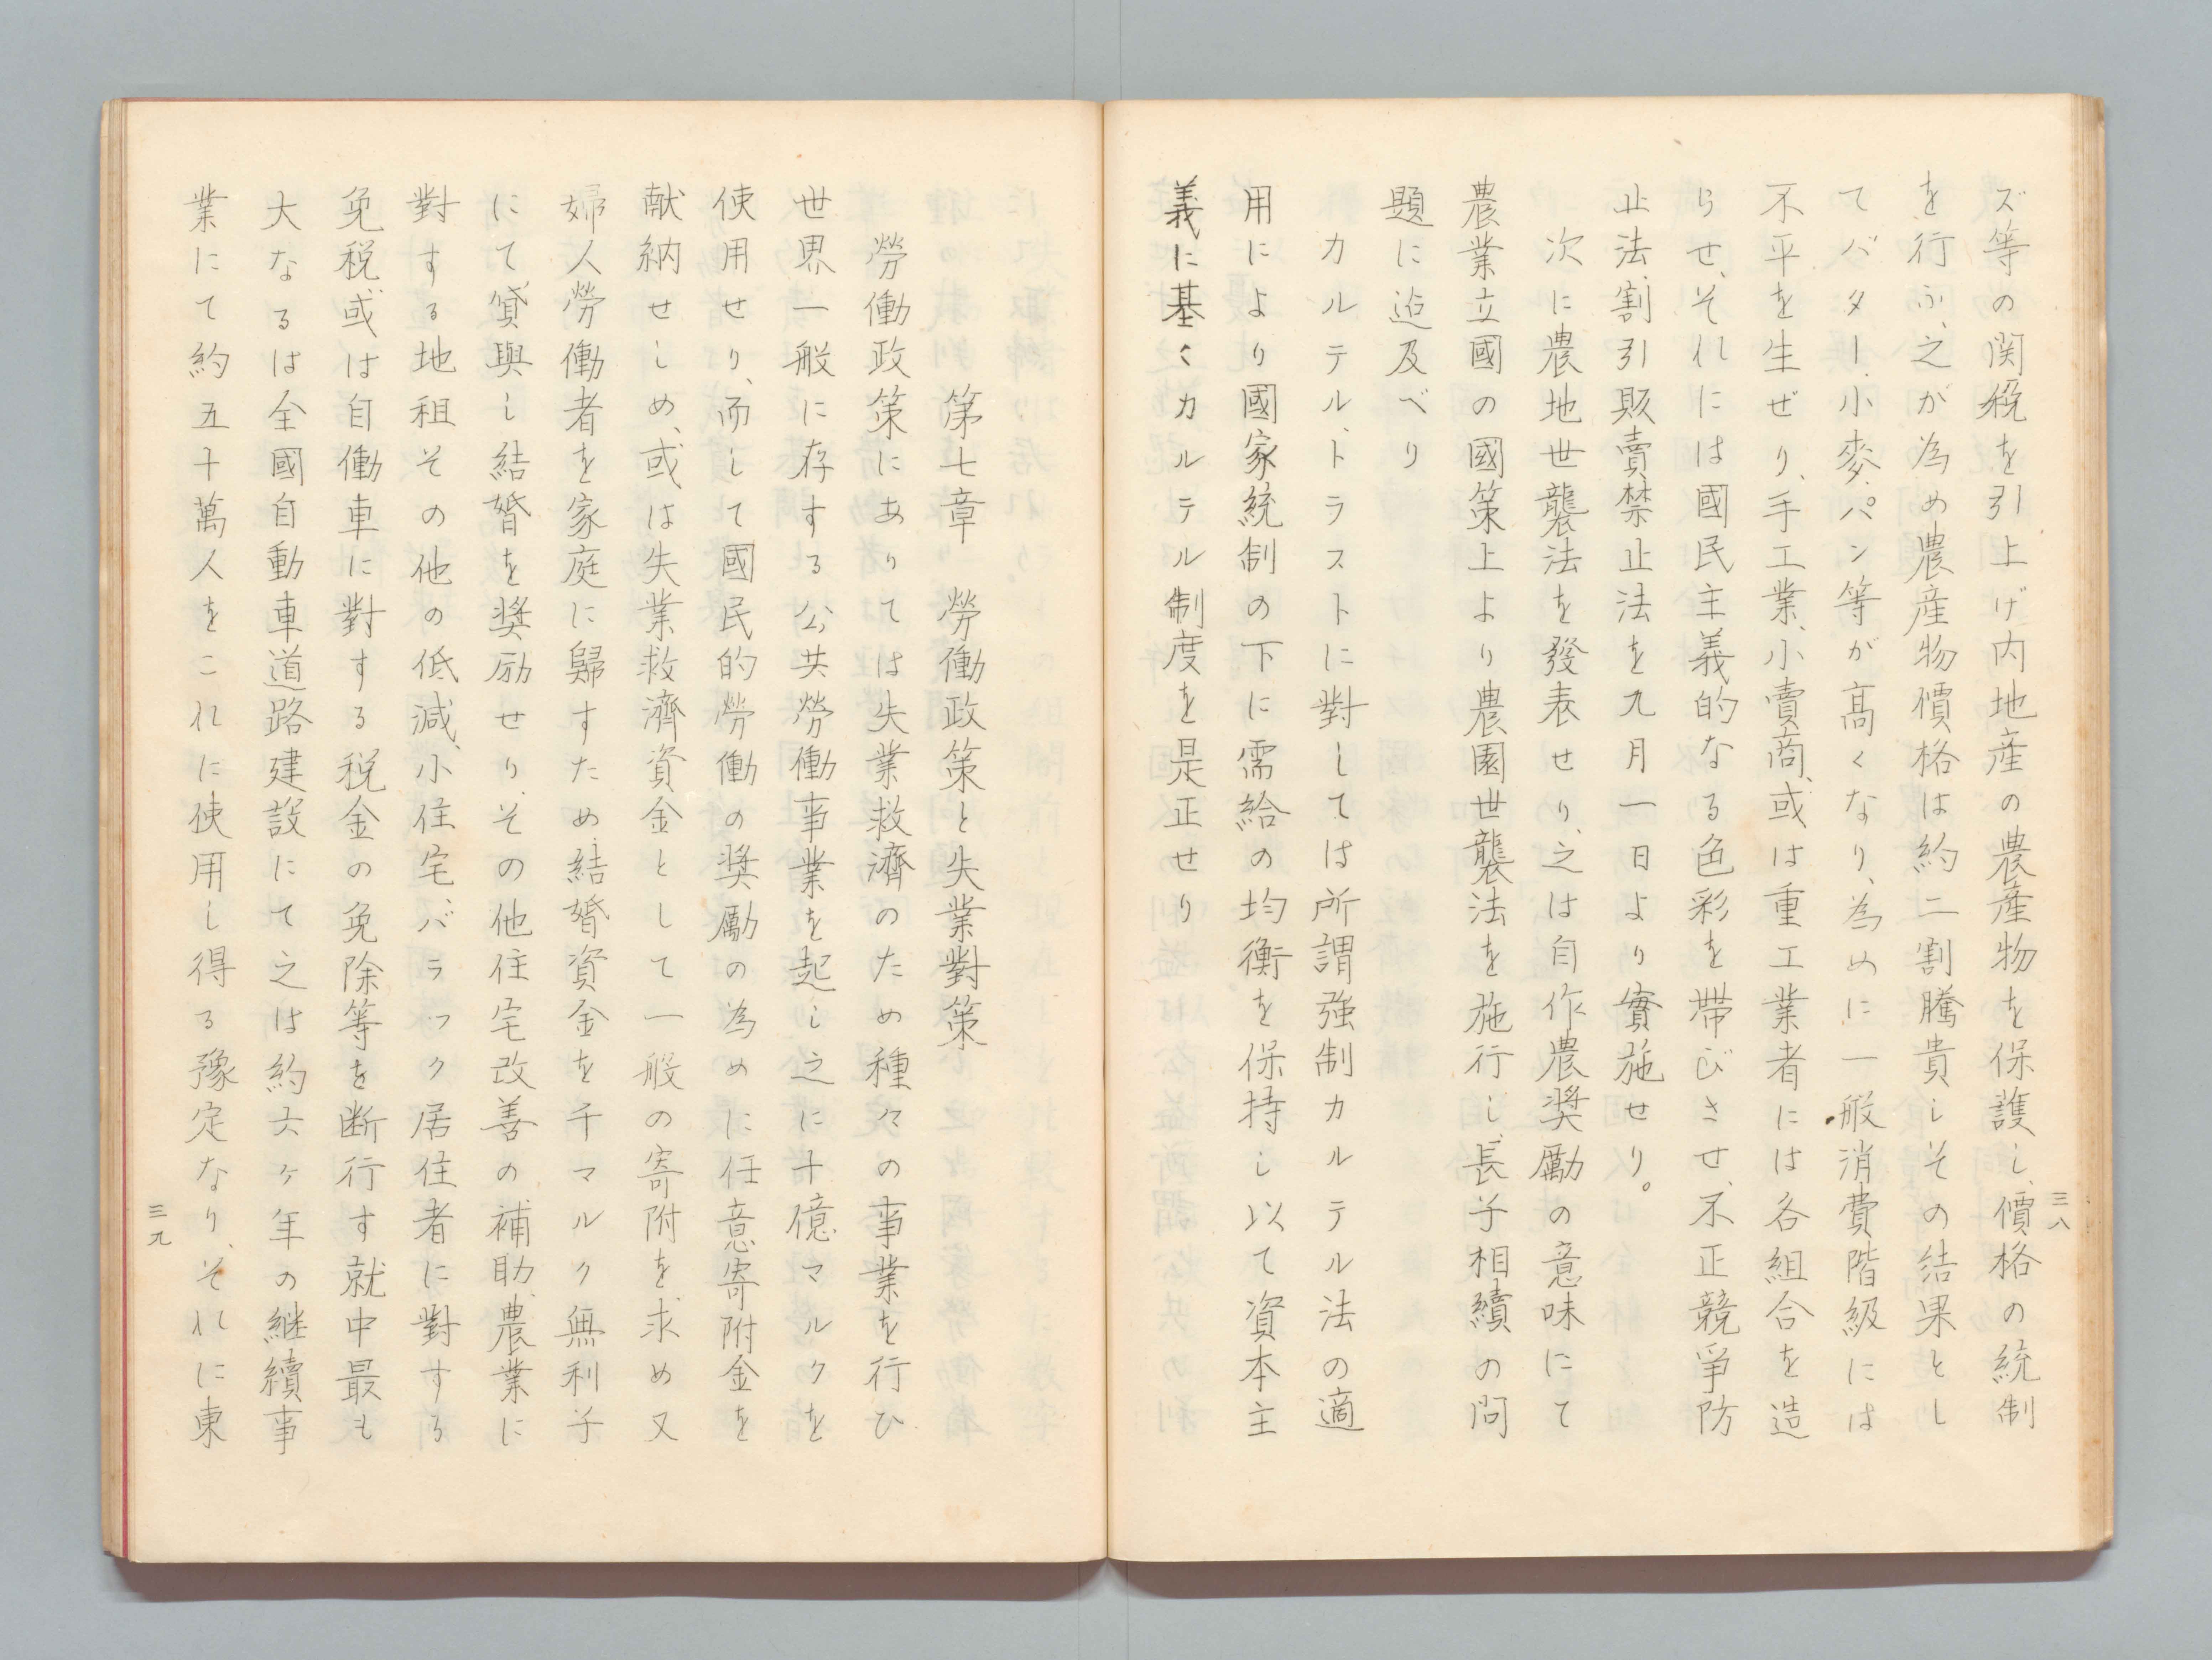 ズ等の関税を引上げ内地産の農産物を保護し、價格の統制
を行ふ、之が為め農産物價格は約二割騰貴しその結果とし
てバター、小麥、パン等が高くなり、為めに一般消費階級には
不平を生ぜり、手工業、小賣商、或は重工業者には各組合を造
らせ、それには國民主義的なる色彩を帯びさせ、不正競爭防
止法、割引販賣禁止法を九月一日より實施せり。
次に農地世襲法を發表せり、之は自作農奨勵の意味にて
農業立國の國策上より農園世襲法を施行し、長子相續の問
題に迨及べり
カルテル、トラストに對しては所謂强制カルテル法の適
用により國家統制の下に需給の均衡を保持し以て資本主
義に基くカルテル制度を是正せり
三八
第七章 勞働政策と失業對策
勞働政策にありては失業救濟のため種々の事業を行ひ
世界一般に存する公共勞働事業を起し之に十億マルクを
使用せり、而して國民的勞働の奨勵の為めに任意寄附金を
献納せしめ、或は失業救濟資金として一般の寄附を求め又
婦人勞働者を家庭に歸すため、結婚資金を千マルク無利子
にて、貸與し結婚を奨励せり、その他住宅改善の補助、農業に
對する地租その他の低減、小住宅、バラック居住者に對する
免税或は自働車に對する税金の免除等を断行す就中最も
大なるは全國自動車道路建設にて之は約六ヶ年の継續事
業にて約五十萬人をこれに使用し得る豫定なり、それに東
三九